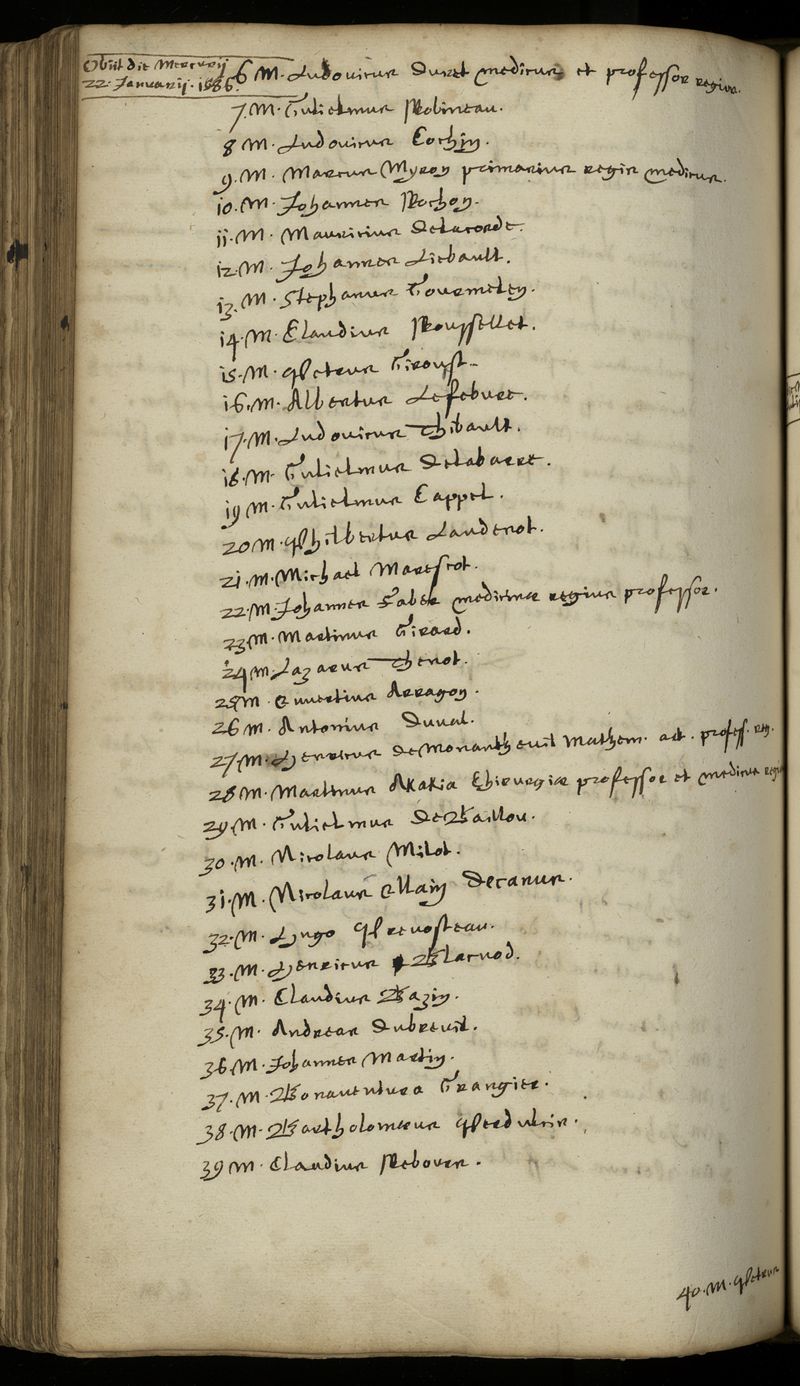 Obiit die Mercurij
22 Januarij · 1586.
6 M. Ludovicus Duret medicus et professor regius.
7. M. Gulielmus Robineau.
8 M. Ludovicus Cochin.
9. M. Marcus Myron primarius regis medicus.
10. M. Johannes Rochon.
11. M. Mauricius Delacorde.
12. M. Johannes Liebault.
13. M. Stephanus Gourmelen.
14. M. Claudius Rousselet.
15. M. Petrus Giroust.
16. M. Albertus Lefebure.
17. M. Ludovicus Thibault.
18. M. Gulielmus Delabarre.
19 M. Gulielmus Cappel.
20 M. Philbertus Landerot.
21. M. Michael Marescot.
22. M. Johannes Faber medicinæ regius professor.
23 M. Martinus Girard.
24 M. Lazarus Thenot.
25 M. Quirtinus Arragon.
26 M. Antonius Duval.
27 M. Henricus Demonantheuil Mathem. art. profess. reg.
28 M. Martinus Akakia Chirurgiæ professor et medicus regi
29 M. Gulielmus De Baillou.
30. M. Nicolaus Milot.
31. M. Nicolaus Ellain Decanus.
32. M. Hugo Prevosteau.
33. M. Henricus Blacvod.
34. M. Claudius Bazin.
35. M. Andreas Dubreuil.
36 M. Johannes Martin.
37. M. Bonaventura Grangier.
38. M. Bartholomæus Perdulcis.
39 M. Claudius Rebours.
40. M. Petrus